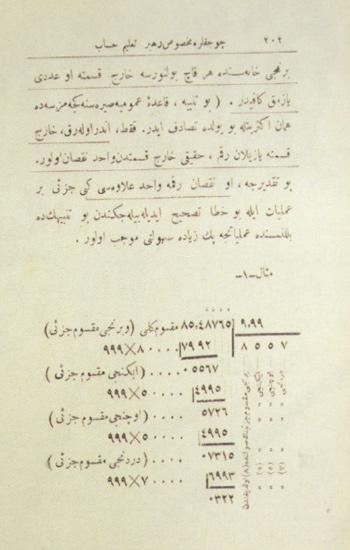 ٢٠٢ چوجقلره مخصوص رهبر تعلیم حساب
برنجی خانه‌سنده هر قاچ بولنورسه خارج قسمته او عددی
یازمق کافیدر. (بو تنبیه، قاعدهٔ عمومیه صیره‌سنه کچه‌مزسه‌ده
همان اکثریتله بو یولده تصادف ایدر. فقط، اندر اوله‌رق، خارج
قسمته یازیلان رقم، حقیقی خارج قسمتدن واحد نقصان اولور.
بو تقدیرجه، او نقصان رقمه واحد علاوه‌سی کبی جزئی بر
عملیات ایله بو خطا تصحیح ایدیله‌بیله‌جکندن بو تنبیهك ده
بیلنمسنده عملیاتجه پك زیاده سهولتی موجب اولور.
مثال -١-
٨٥،٤٨٧٦٥ مقسوم کلی (وبرنجی مقسوم جزئی)
٩،٩٩
٨ ٥ ٥ ٧
٧٩٩٢ ٠٠٠٠ ٨ × ٩٩٩
٠٥٥٦٧ ٠٠٠٠ (ایکنجی مقسوم جزئی)
٤٩٩٥ ٠٠٠٠ ٥ × ٩٩٩
٥٧٢٦ ٠٠٠٠ (اوچنجی مقسوم جزئی)
٤٩٩٥ ٠٠٠٠ ٥ × ٩٩٩
٠٧٣١٥ ٠٠٠٠ (دردنجی مقسوم جزئی)
٦٩٩٣ ٠٠٠٠ ٧ × ٩٩٩
٠٣٢٢
برنجی مقسوم جزئی
ایکنجی » » (٥)
اوچنجی » » (٥)
دردنجی » » (٧)